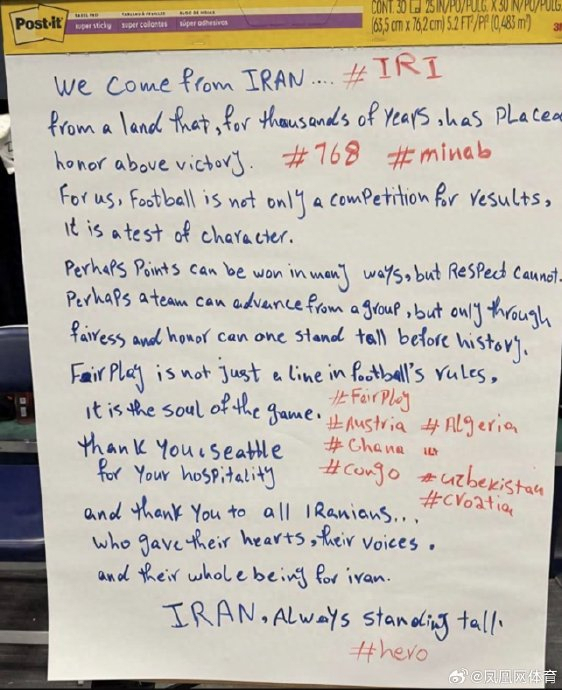 Post-it
super sticky
super collantes
súper adhesivas
CONT. 30 25 IN/PO/PULG. X 30 IN/PO/PULG.
(63,5 cm x 76,2 cm) 5.2 FT²/PI² (0,483 m²)
We come from IRAN.... #IRI
from a land that, for thousands of years, has placed
honor above victory. #768 #minab
For us, Football is not only a competition for results,
it is a test of character.
Perhaps Points can be won in many ways, but Respect cannot.
Perhaps a team can advance from a group, but only through
fairess and honor can one stand tall before history.
FairPlay is not just a line in football's rules,
it is the soul of the game. #FairPlay
#Austria #Algeria
thank you, seattle #Ghana
for your hospitality #Congo #uzbekistan
#Croatia
and thank you to all IRanians...
who gave their hearts, their voices.
and their whole being for iran.
IRAN, Always standing tall.
#hero
@凤凰网体育